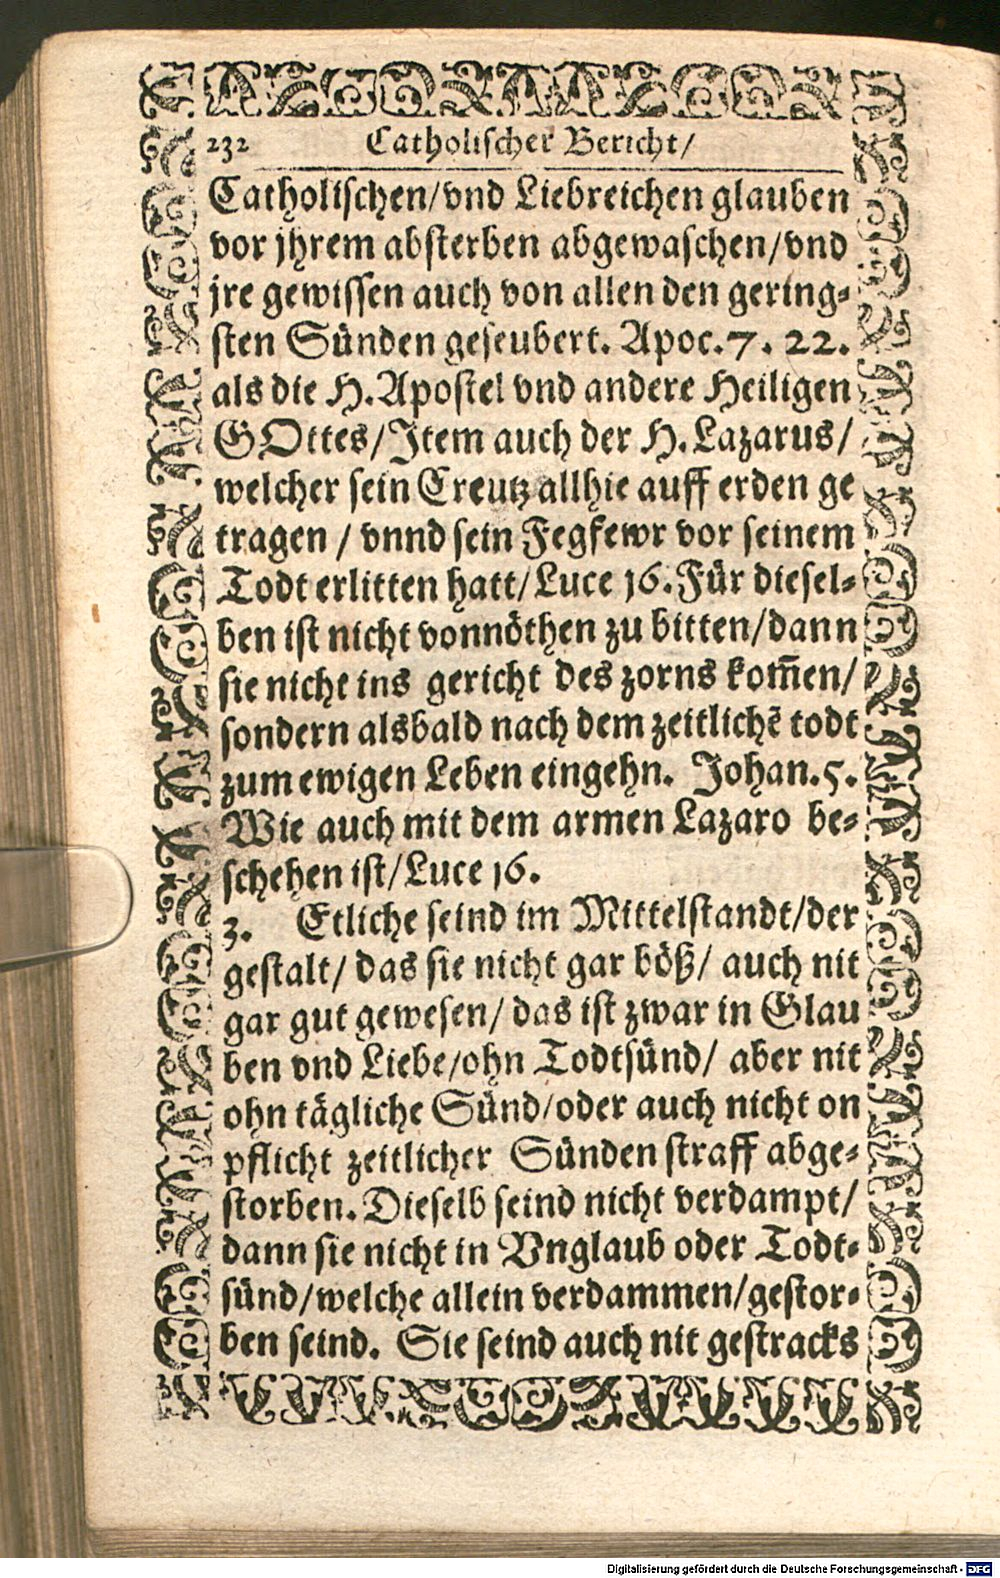 232 Catholischer Bericht/
Catholischen/vnd Liebreichen glauben
vor jhrem absterben abgewaschen/vnd
jre gewissen auch von allen den gering⸗
sten Sünden geseubert. Apoc. 7. 22.
als die H. Apostel vnd andere Heiligen
GOttes/Jtem auch der H. Lazarus/
welcher sein Creutz allhie auff erden ge
tragen / vnnd sein Fegfewr vor seinem
Todt erlitten hatt/Luce 16. Für diesel⸗
ben ist nicht vonnöthen zu bitten/dann
sie nicht ins gericht des zorns kom̃en/
sondern alsbald nach dem zeitlichẽ todt
zum ewigen Leben eingehn. Johan. 5.
Wie auch mit dem armen Lazaro be⸗
schehen ist/Luce 16.
3. Etliche seind im Mittelstandt/der
gestalt/ das sie nicht gar böß/ auch nit
gar gut gewesen/ das ist zwar in Glau
ben vnd Liebe/ohn Todtsünd/ aber nit
ohn tägliche Sünd/oder auch nicht on
pflicht zeitlicher Sünden straff abge⸗
storben. Dieselb seind nicht verdampt/
dann sie nicht in Vnglaub oder Todt⸗
sünd/welche allein verdammen/gestor⸗
ben seind. Sie seind auch nit gestracks
Digitalisierung gefördert durch die Deutsche Forschungsgemeinschaft - DFG